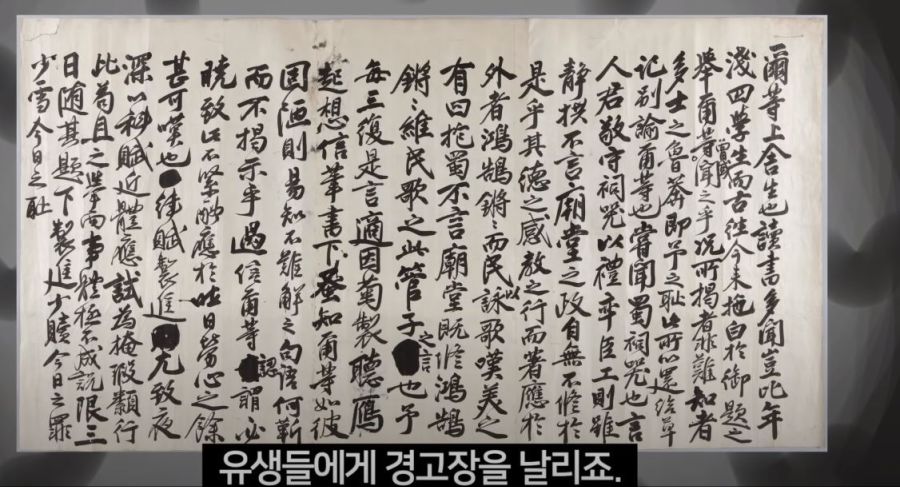 爾等上舍生也讀書多聞豈比年
淺四學生而古往今來拖白於御題之
擧爾等曾或聞之乎况所揭者非難知者
多士之魯莽即予之恥此所以還給草
记别諭爾等也嘗聞蜀祠器也言
人君敬守祠器以禮率臣工則雖
静拱不言廟堂之政自無不修於
是乎其德之感教之行而著應於
外者鴻鵠鏘〻而民以詠歌嘆美之
有曰抱蜀不言廟堂既修鴻鵠
鏘〻維民歌之此管子之言也予
每三復是言適因菊製聽鴈
起想信筆書下蚤知爾等如彼
固陋則易知不難解之句語何靳
而不揭示乎過信爾等認謂必
曉致此不緊酬應於昨日勞心之餘
甚可嘆也律賦製進尤致夜
深以科賦近體應試為掩瑕纇行
此苟且之擧而事體極不成説限三
日随其題下製進少贖今日之罪
少雪今日之恥
유생들에게 경고장을 날리죠.